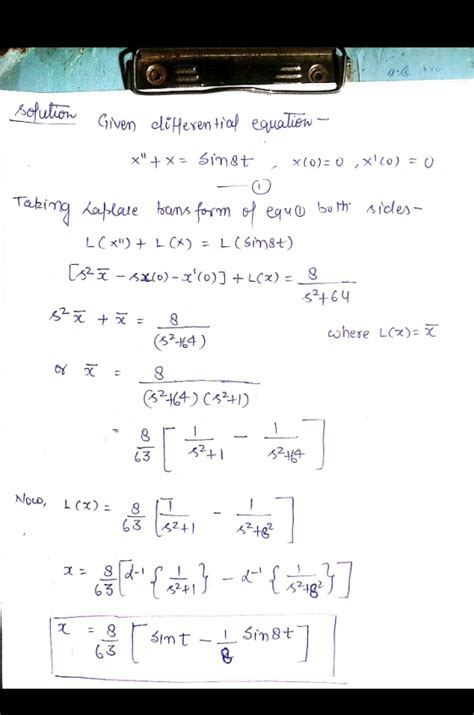 Solution Given differential equation -
x'' + x = sin8t , x(0)=0 , x'(0) = 0
— ①
Taking Laplace transform of equ ① both sides -
L(x'') + L(x) = L(sin8t)
[s²x̄ - sx(0) - x'(0)] + L(x) = 8/(s²+64)
s²x̄ + x̄ = 8/(s²+64) where L(x) = x̄
or x̄ = 8/((s²+64)(s²+1))
= 8/63 [ 1/(s²+1) - 1/(s²+64) ]
Now, L(x) = 8/63 [ 1/(s²+1) - 1/(s²+8²) ]
x = 8/63 [ L⁻¹ { 1/(s²+1) } - L⁻¹ { 1/(s²+8²) } ]
x = 8/63 [ sint - 1/8 sin8t ]